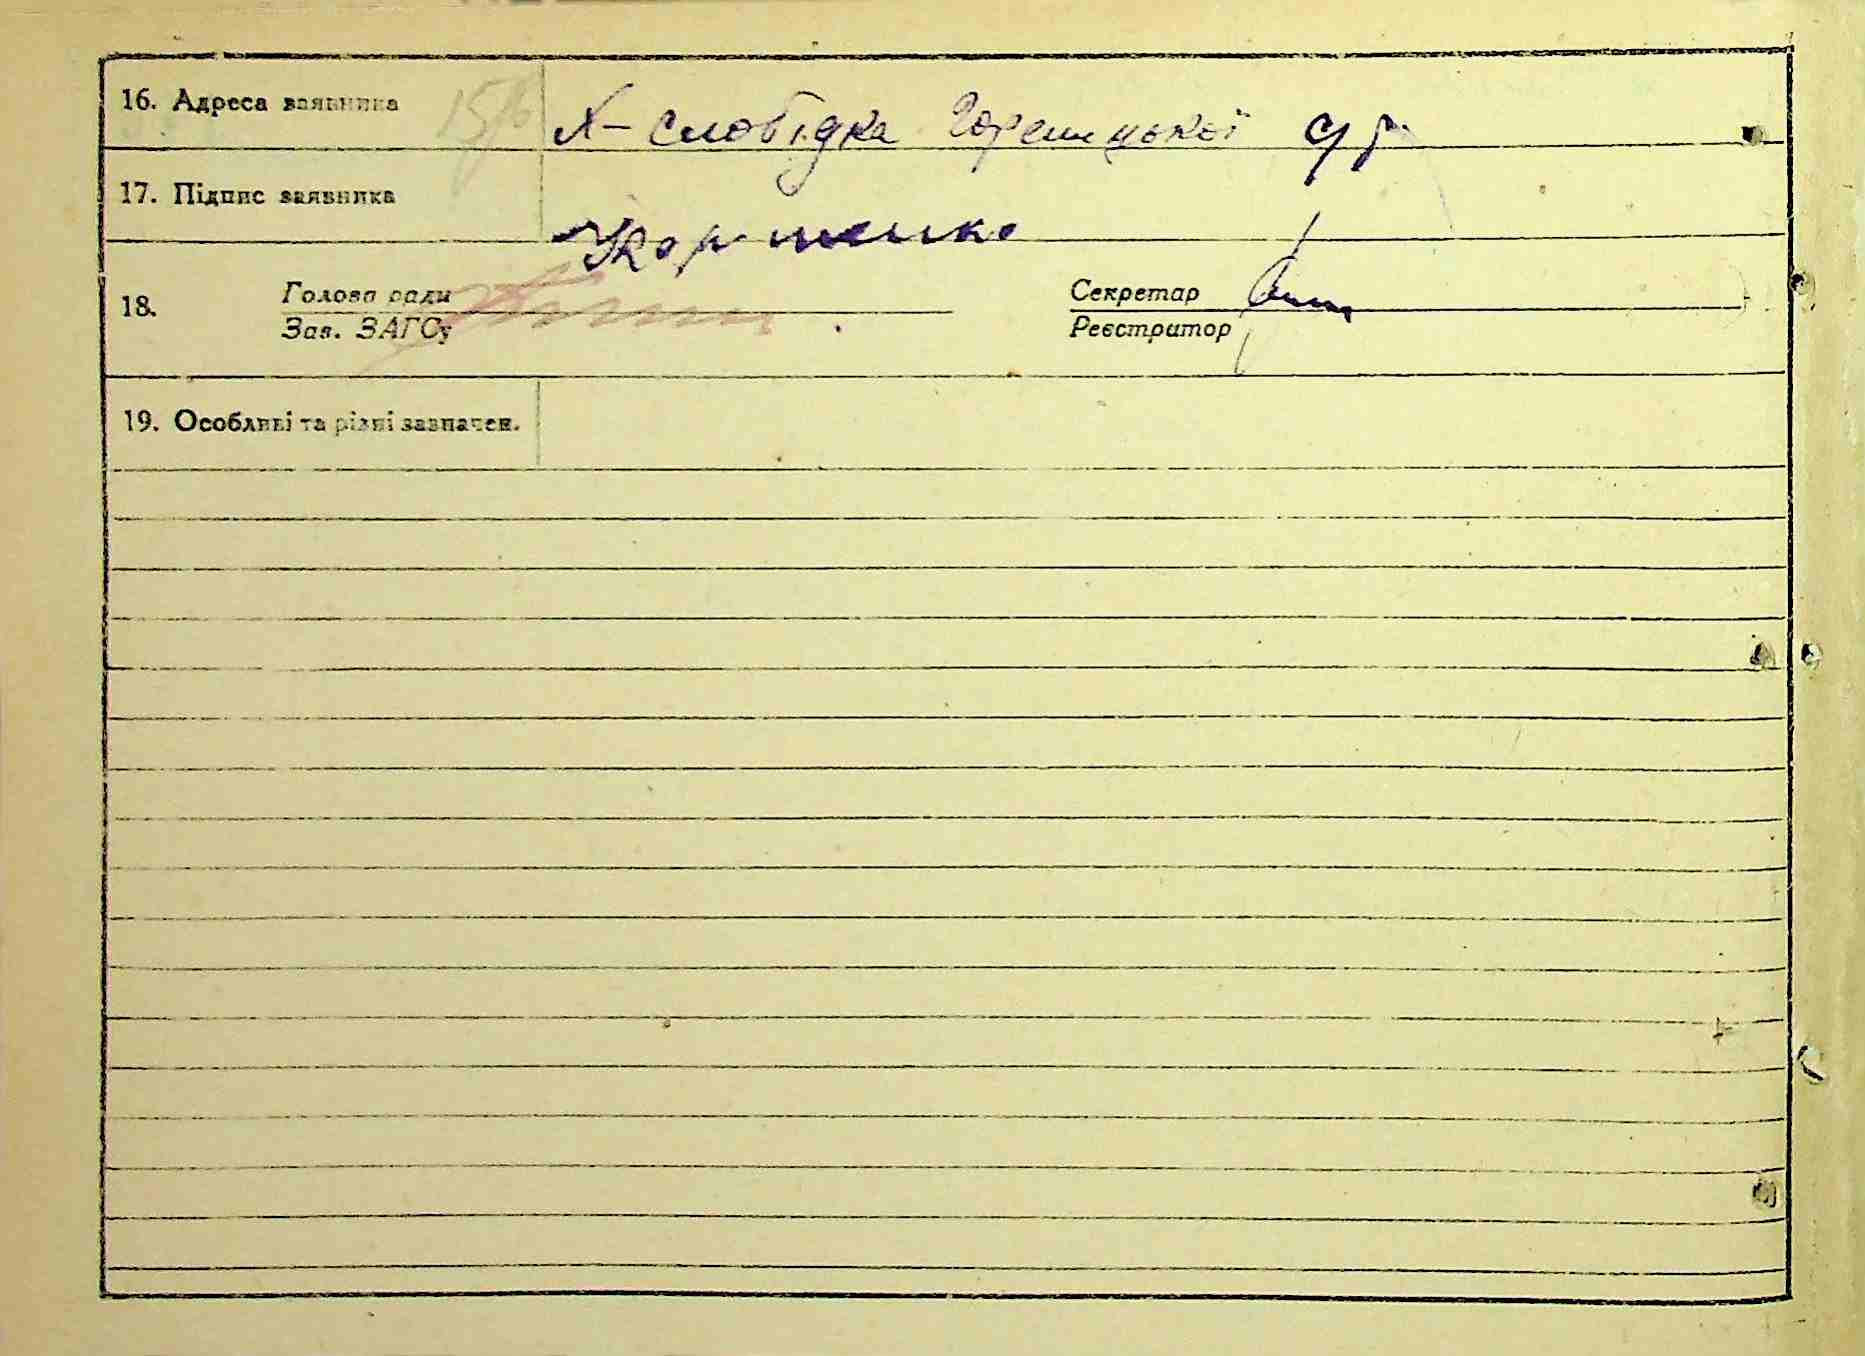 16. Адреса заявника Х-Слобідка Гореницької с/р
17. Підпис заявника Корженко
18. Голова ради Секретар
Зав. ЗАГСу Реєстратор
19. Особливі та різні зазначен.